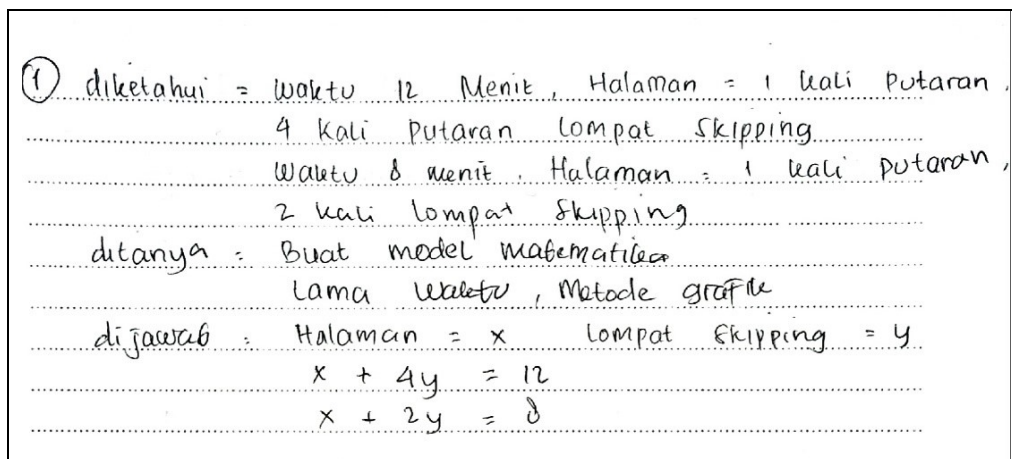 ① diketahui = waktu 12 Menit, Halaman = 1 kali putaran,
4 kali putaran lompat skipping
waktu 8 menit, Halaman = 1 kali putaran,
2 kali lompat skipping
ditanya : Buat model matematika
Lama waktu, Metode grafik
dijawab : Halaman = x lompat skipping = y
x + 4y = 12
x + 2y = 8